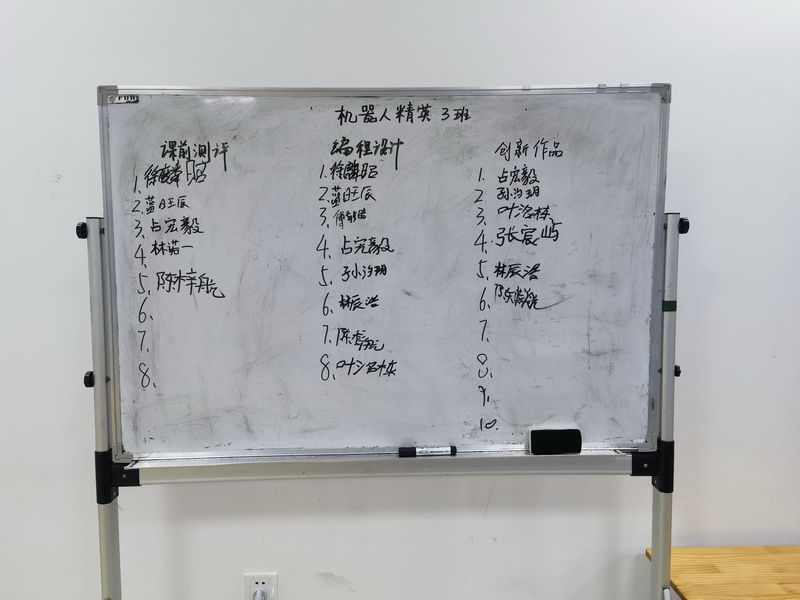 机器人精英3班
课前测评
1.徐麟昭
2.蓝日辰
3.占宏毅
4.林诺一
5.陈梓航
6.
7.
8.
编程设计
1.徐麟昭
2.蓝日辰
3.
4.占宏毅
5.孙汐玥
6.林辰浩
7.陈梓航
8.叶洺林
创新作品
1.占宏毅
2.孙汐玥
3.叶洺林
4.张宸屿
5.林辰浩
6.陈梓航
7.
8.
9.
10.